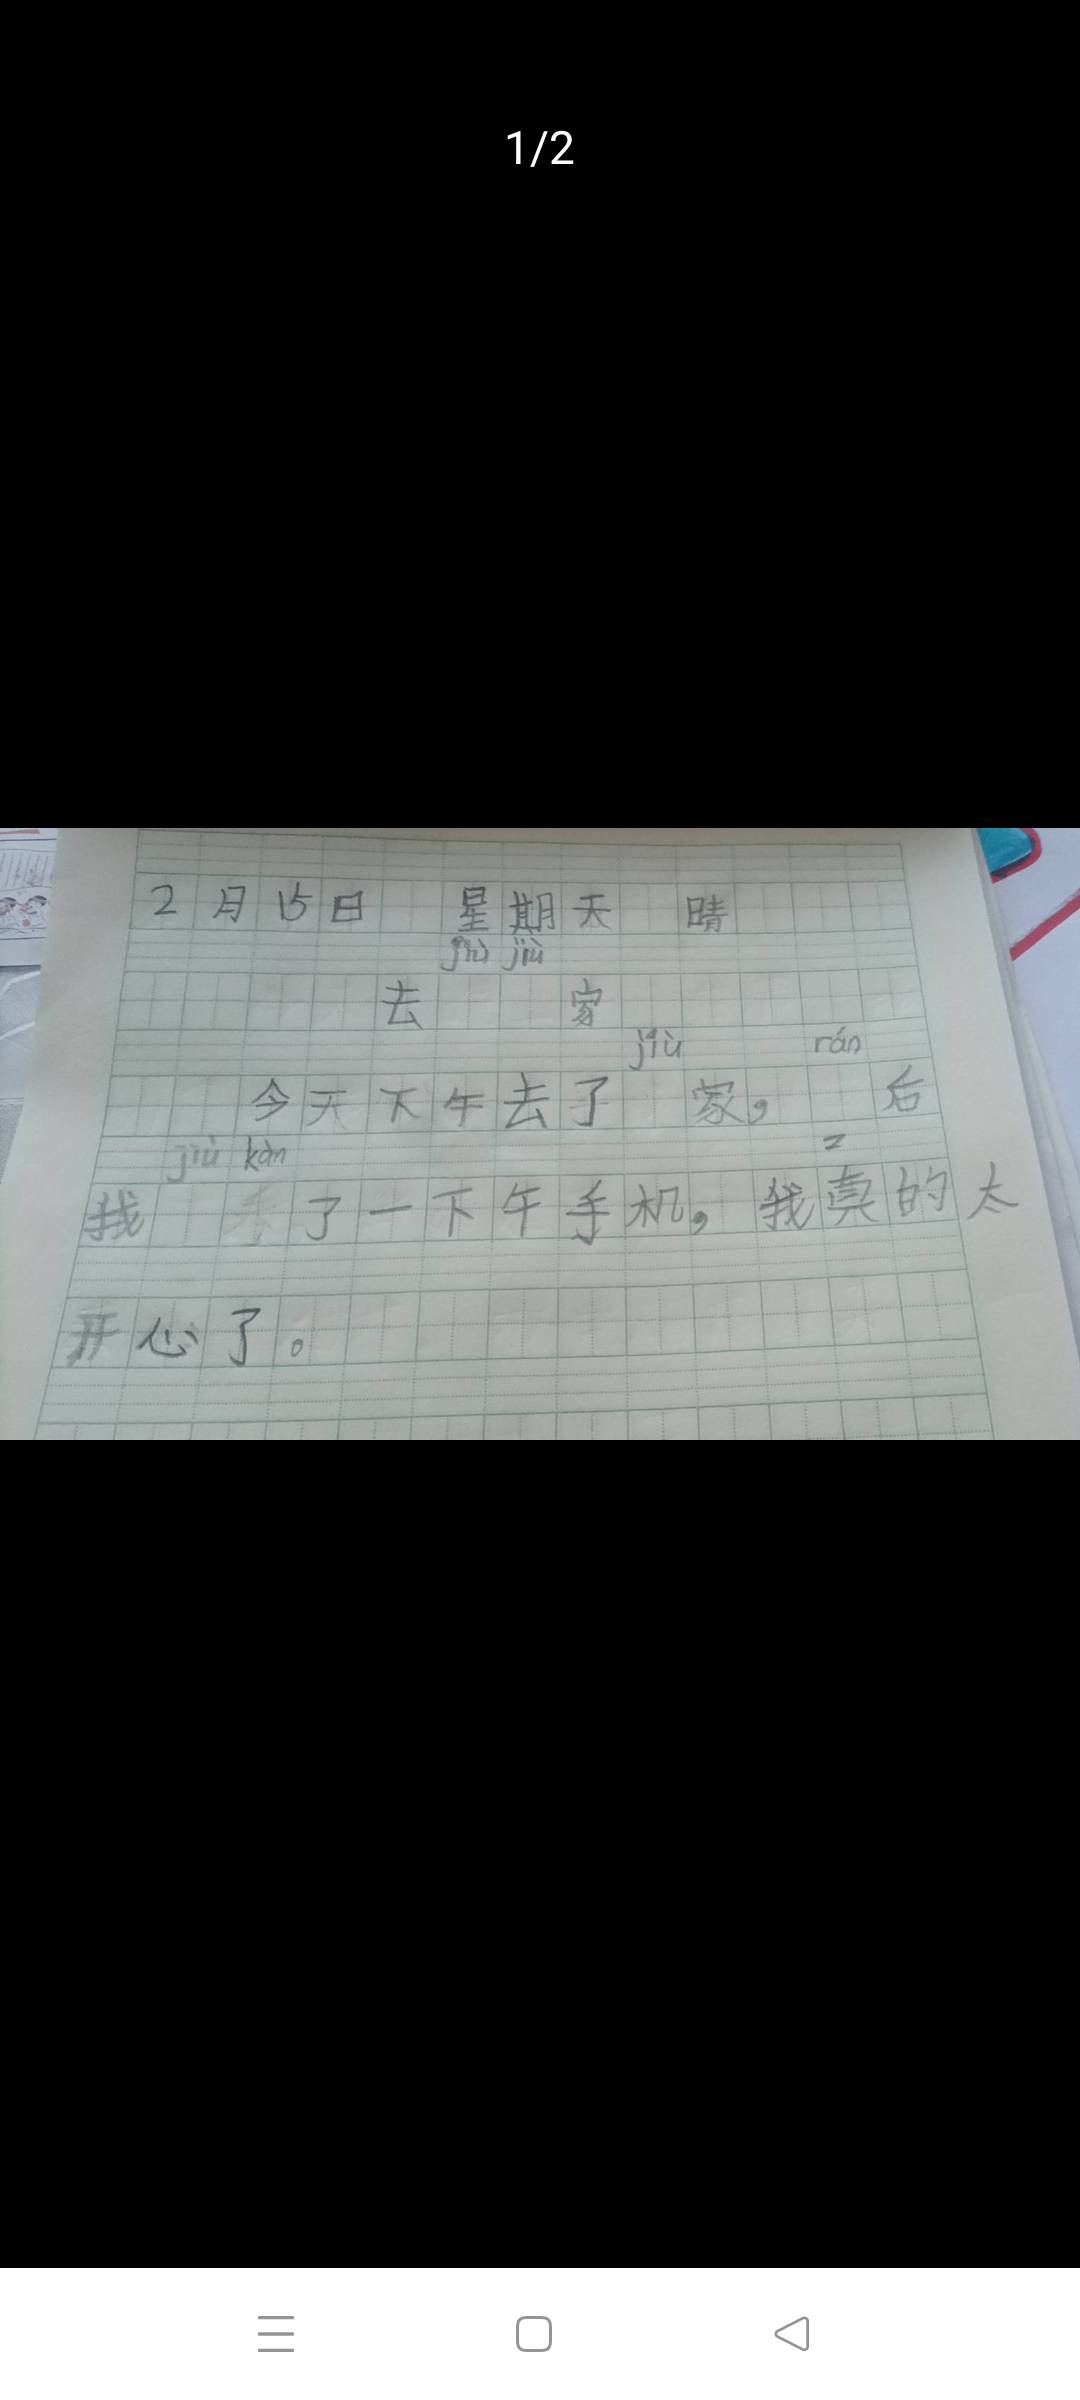 1/2
2月15日 星期天 晴
jiù jiù
去 家
jiù rán
今天下午去了 家, 后
jiù kàn
我 了一下午手机,我真的太
开心了。